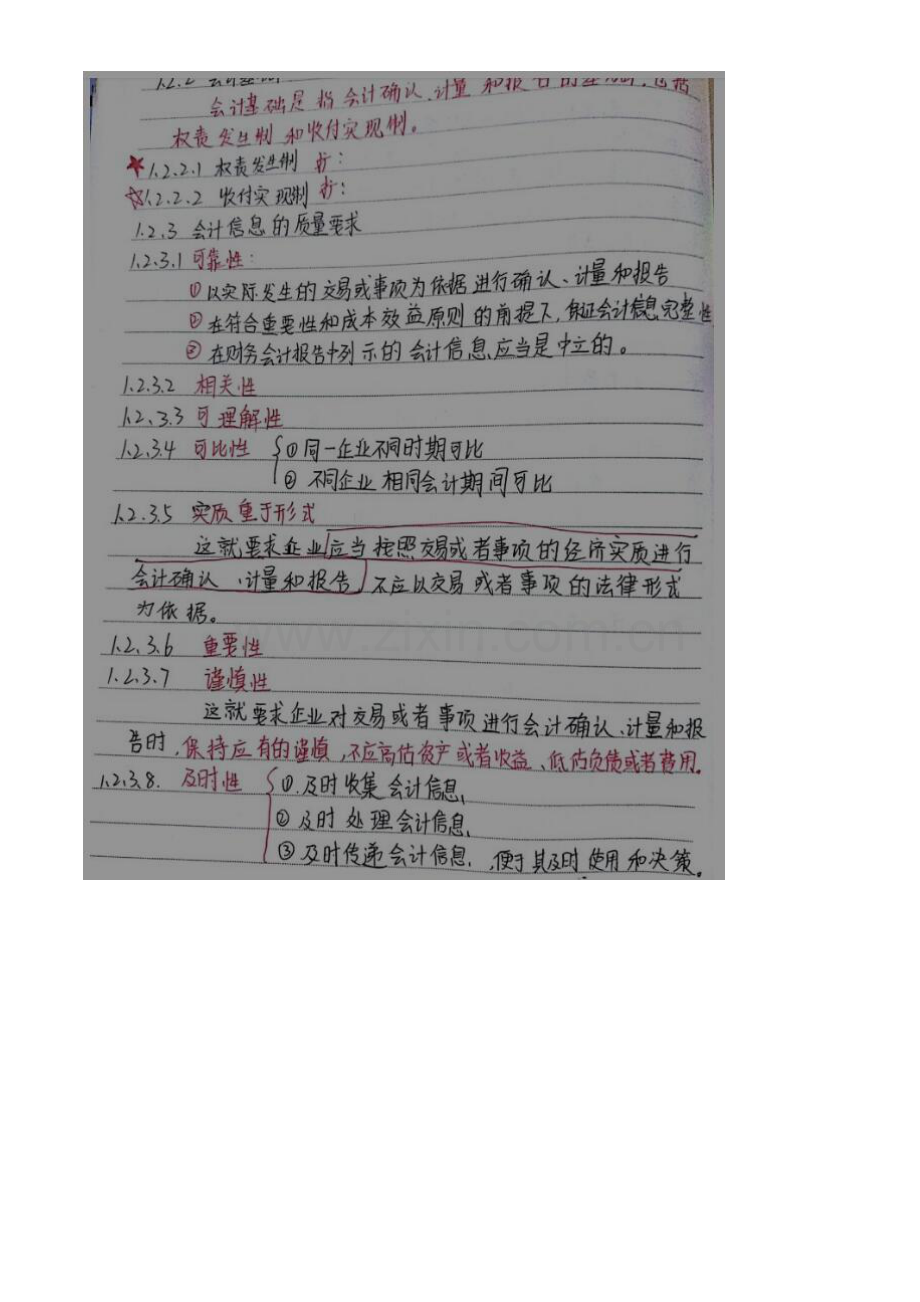 1.2.2 会计基础
会计基础是指会计确认、计量和报告的基础,包括
权责发生制和收付实现制。
★1.2.2.1 权责发生制 扩:
☆1.2.2.2 收付实现制 扩:
1.2.3 会计信息的质量要求
1.2.3.1 可靠性:
①以实际发生的交易或事项为依据进行确认、计量和报告
②在符合重要性和成本效益原则的前提下,保证会计信息完整性
③在财务会计报告中列示的会计信息应当是中立的。
1.2.3.2 相关性
1.2.3.3 可理解性
1.2.3.4 可比性 ①同一企业不同时期可比
② 不同企业相同会计期间可比
1.2.3.5 实质重于形式
这就要求企业应当按照交易或者事项的经济实质进行
会计确认、计量和报告不应以交易或者事项的法律形式
为依据。
www.zixin.com.cn
1.2.3.6 重要性
1.2.3.7 谨慎性
这就要求企业对交易或者事项进行会计确认、计量和报
告时,保持应有的谨慎,不应高估资产或者收益、低估负债或者费用。
1.2.3.8. 及时性 ①.及时收集会计信息、
②及时处理会计信息、
③及时传递会计信息、,便于其及时使用和决策。